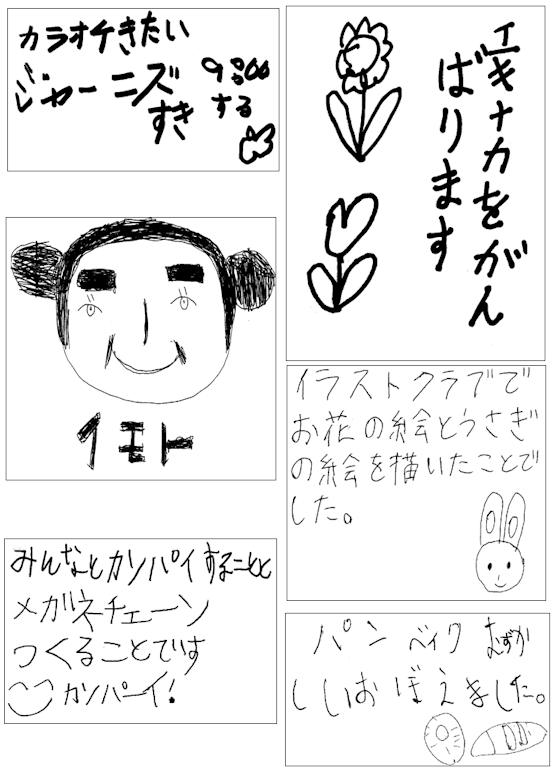 カラオケきたい
ジャーニズ
すき
9:00
する
エキナカをがん
ばります
イモト
イラストクラブで
お花の絵とうさぎ
の絵を描いたことで
した。
みんなとカンパイすることと
メガネチェーン
つくることです
カンパーイ!
パン ベイク むずか
しいおぼえました。